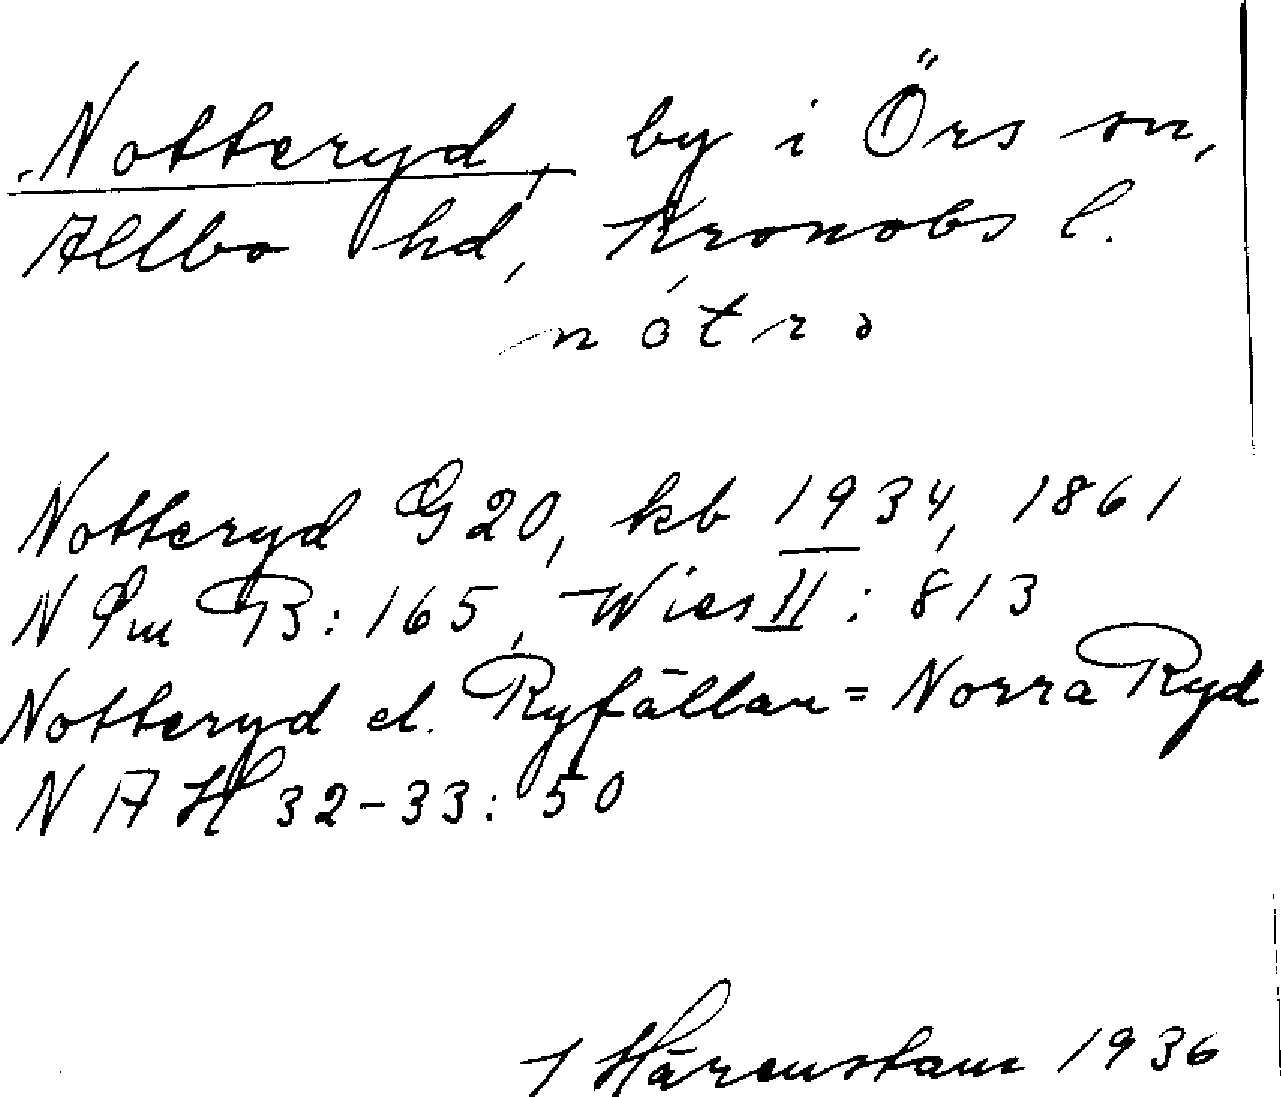 Notteryd, by i Örs sn,
Allbo hd, Kronobs l.
nótrə
Notteryd G 20, kb 1934, 1861
N Sm B: 165, Wies II: 813
Notteryd el. Ryfällan = Norra Ryd
N A H 32-33: 50
J Hårenstam 1936